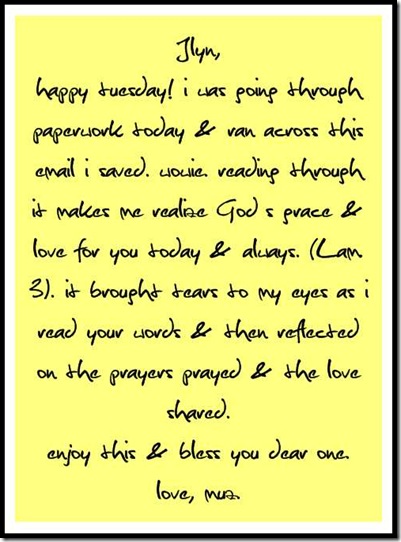 Jlyn,
happy tuesday! i was going through
paperwork today & ran across this
email i saved. wowie. reading through
it makes me realize God s grace &
love for you today & always. (Lam.
3). it brought tears to my eyes as i
read your words & then reflected
on the prayers prayed & the love
shared.
enjoy this & bless you dear one.
love, muz